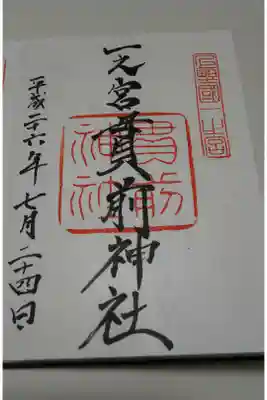 上野國一之宮
一之宮貫前神社
貫前神社
平成二十六年七月二十四日